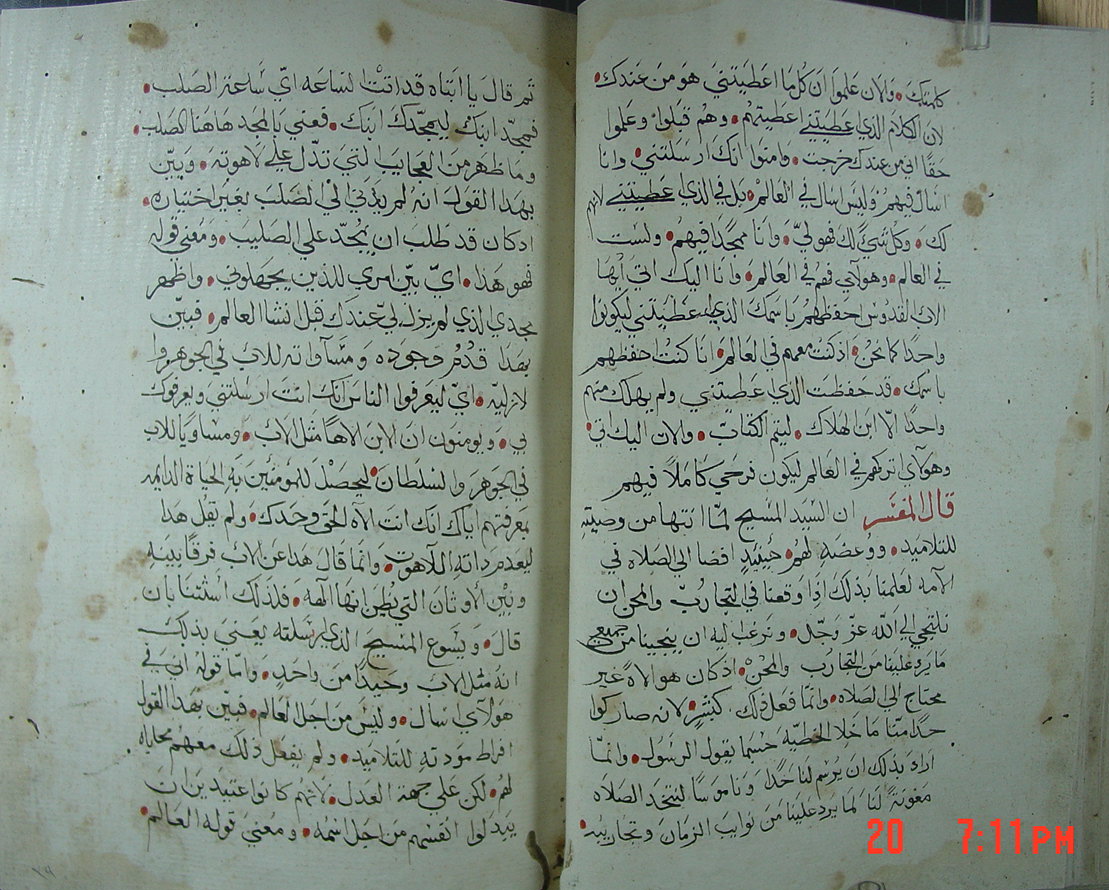 كلمتك • والان علموا ان كل ما اعطيتني هو من عندك •
لان الكلام الذي عطيتني اعطيتهم • وهم قبلوا وعلموا
حقًا اني من عندك خرجت • وامنوا انك ارسلتني • وانا
اسال فيهم وليس اسال في العالم • بل في الذي اعطيتني لانهم
لك • وكل شيً لك فهو لي • وانا ممجدًا فيهم • ولست
في العالم • وهولآي فهم في العالم • وانا اليك اتي ايها
الاب القدوس احفظهم باسمك الذي عطيتني ليكونوا
واحدًا كما نحن • اذ كنت معهم في العالم • انا كنت احفظهم
باسمك • قد حفظت الذي عطيتني ولم يهلك منهم
واحدًا الّا ابن الهلاك • ليتم الكتاب • والان اليك اتي •
وهولآي اتركهم في العالم ليكون فرحي كاملاً فيهم
قال المفسر ان السيد المسيح لما انتها من وصيته
للتلاميد • ووعضه لهم • حينيدٍ افضا الي الصلاه في
الآمه لعلمنا بذلك اذا وقعنا في التجارب والمحن ان
نلتجي الي الله عز وجل • ونرغب ليه ان ينجينا من جميع
ما يرد علينا من التجارب والمحن • اذ كان هو الاهً غير
محتاج الي الصلاه • وانما فعل ذلك كثيرٍ لانه صار كوا
حدًا منا ما خلا الخطيه حسما يقول الرسول • وانما
اراد بذلك ان يرسم لنا حدًا وناموسًا لنتخد الصلاه
معونةً لنا لما يرد علينا من نوايب الزمان وتجاربيه •
تم قال يا ابتاه قد اتت الساعه اي ساعة الصلب •
فمجد ابنك ليمجدك ابنك • فعني بالمجد هاهنا الصلب •
وما ظهر من العجايب التي تدل علي لاهوته • وبين
بهدا القول انه لم يدني الي الصلب بغير اختياره •
اد كان قد طلب ان يمجد علي الصليب • ومعني قوله
فهو هذا • اي بين امري للذين يجهلوني • واظهر
مجدي الذي لم يزل لي عندك قبل انشا العالم • فبين
بهدا قدم وجوده ومساواته للاب في الجوهر وا
لازليه • اي ليعرفوا الناس انك انت ارسلتني ويعرفوك
بي • ويومنون ان الابن الاهًا مثل الاب • ومساويًا للاب
في الجوهر والسلطان • ليحصل للمومنين به الحياة الدايمه
بمعرفتهم اياك انك انت الاه الحق وحدك • ولم يقل هدا
ليعدم داته اللاهوت • وانما قال هدا عن الاب فرقًا بينه
وبين الاوثان التي يظن انها الهه • فلذلك استثنا بان
قال • ويسوع المسيح الذي ارسلته يعني بذلك
انه مثل الاب وحيدًا من واحدٍ • واما قوله اني في
هولآي اسال • وليس من اجل العالم • فبين بهدا القول
افراط مودته للتلاميد • ولم يفعل ذلك معهم محاباه
لهم • لكن علي جهة العدل • لانهم كانوا عتيدين ان
يبدلوا انفسهم من اجل اسمه • ومعني قوله العالم •
20 7:11 PM